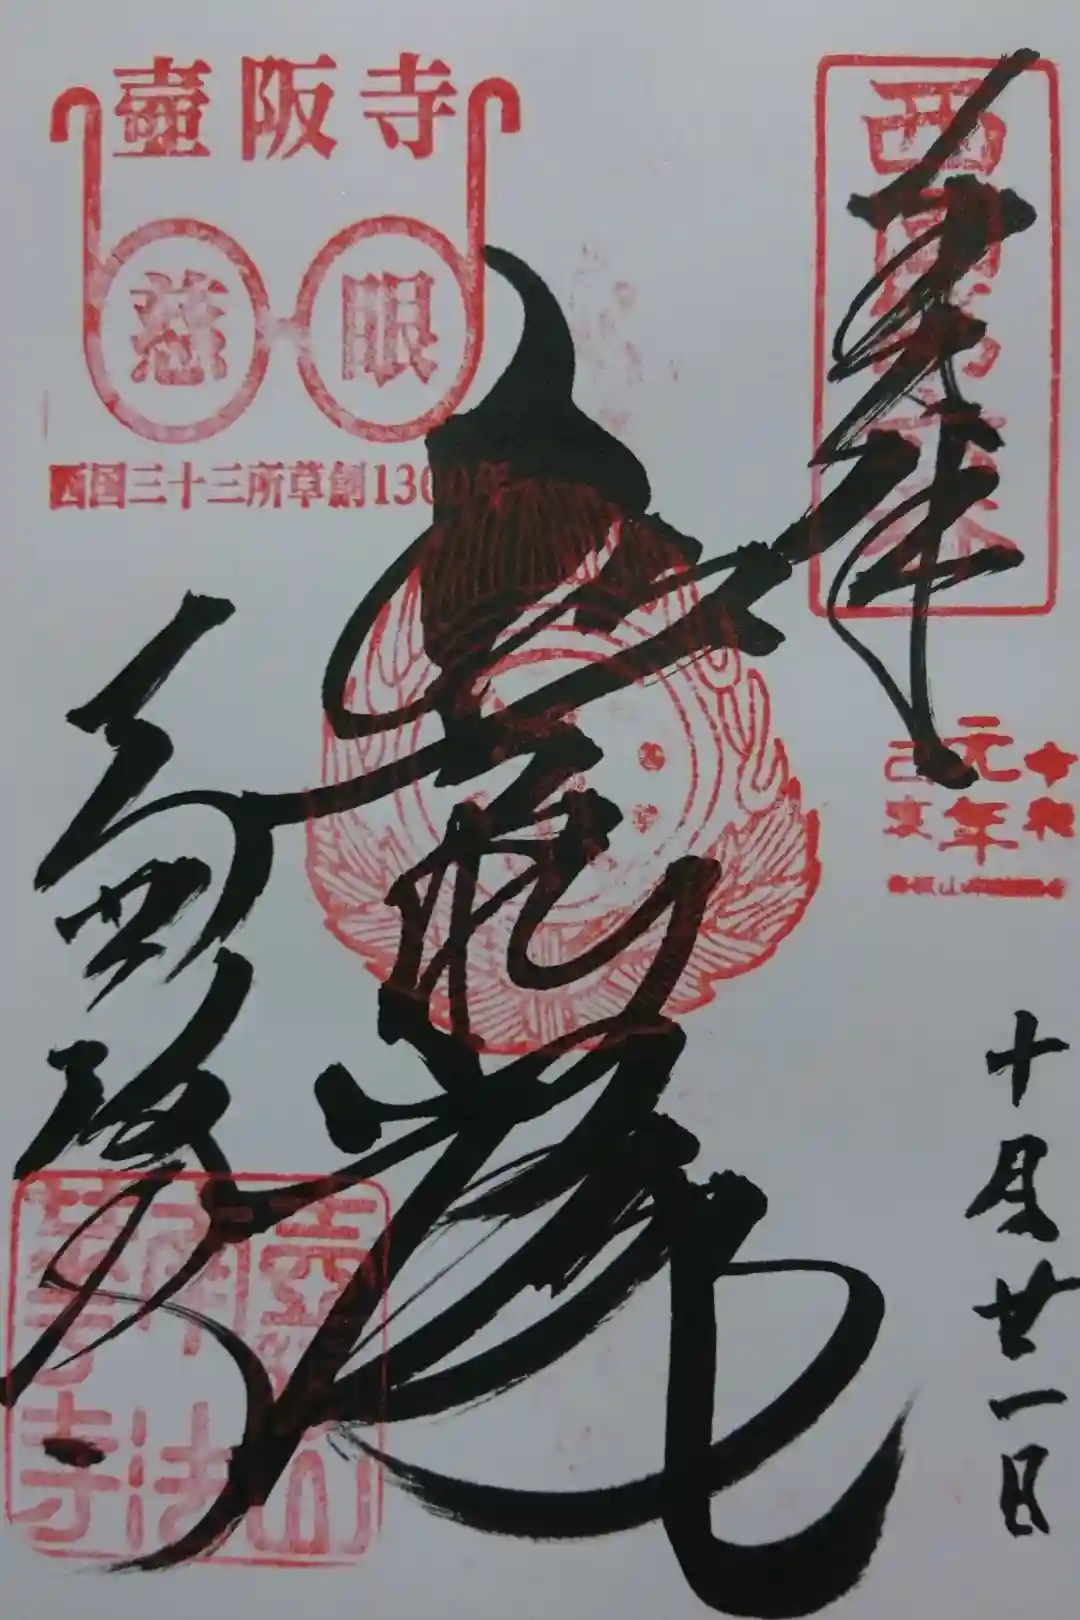 奉拝
西国第六番
令和
元年
己亥
十月廿一日
普照殿
壷阪寺
壺阪寺
慈眼
西国三十三所草創1300年
壺阪山
南法
華寺